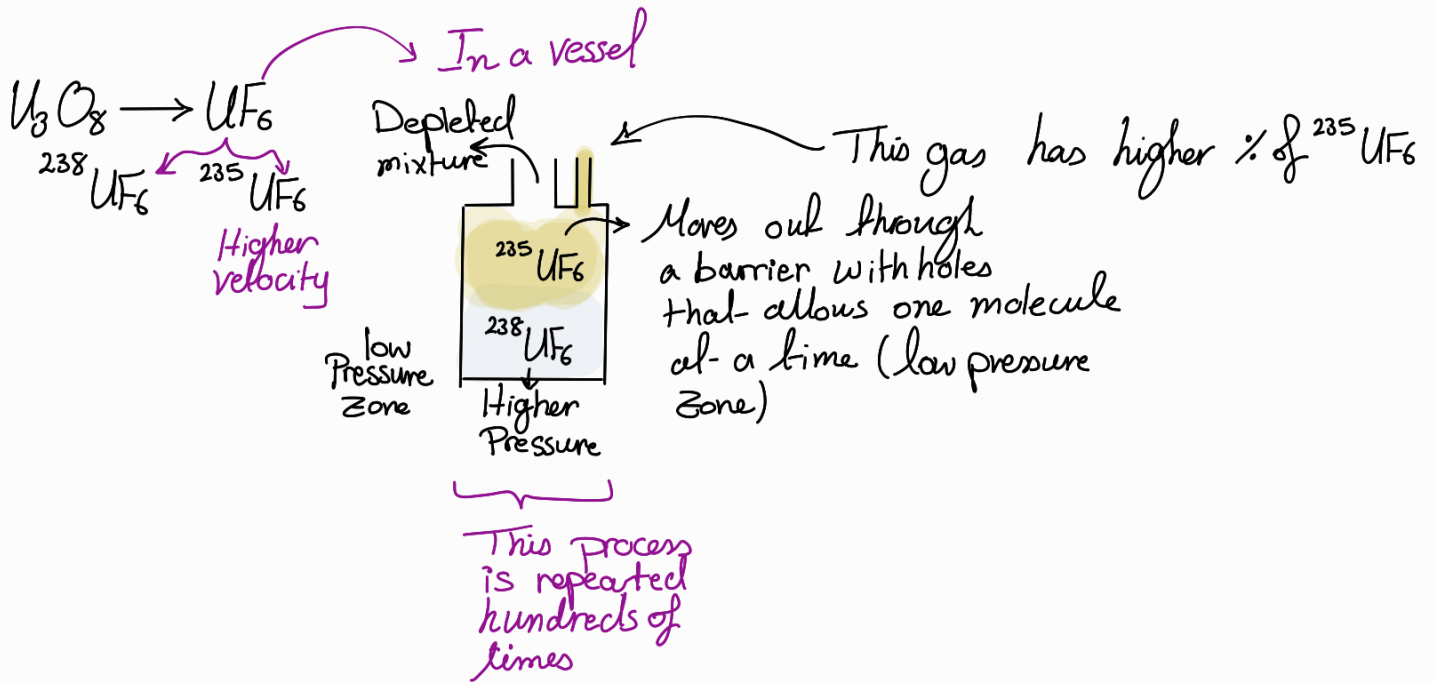 In a vessel
U₃O₈ → UF₆
²³⁸UF₆ ²³⁵UF₆
Higher
velocity
Depleted
mixture
This gas has higher % of ²³⁵UF₆
²³⁵UF₆
Moves out through
a barrier with holes
that allows one molecule
at a time (low pressure
zone)
²³⁸UF₆
low
Pressure
Zone
Higher
Pressure
This process
is repeated
hundreds of
times